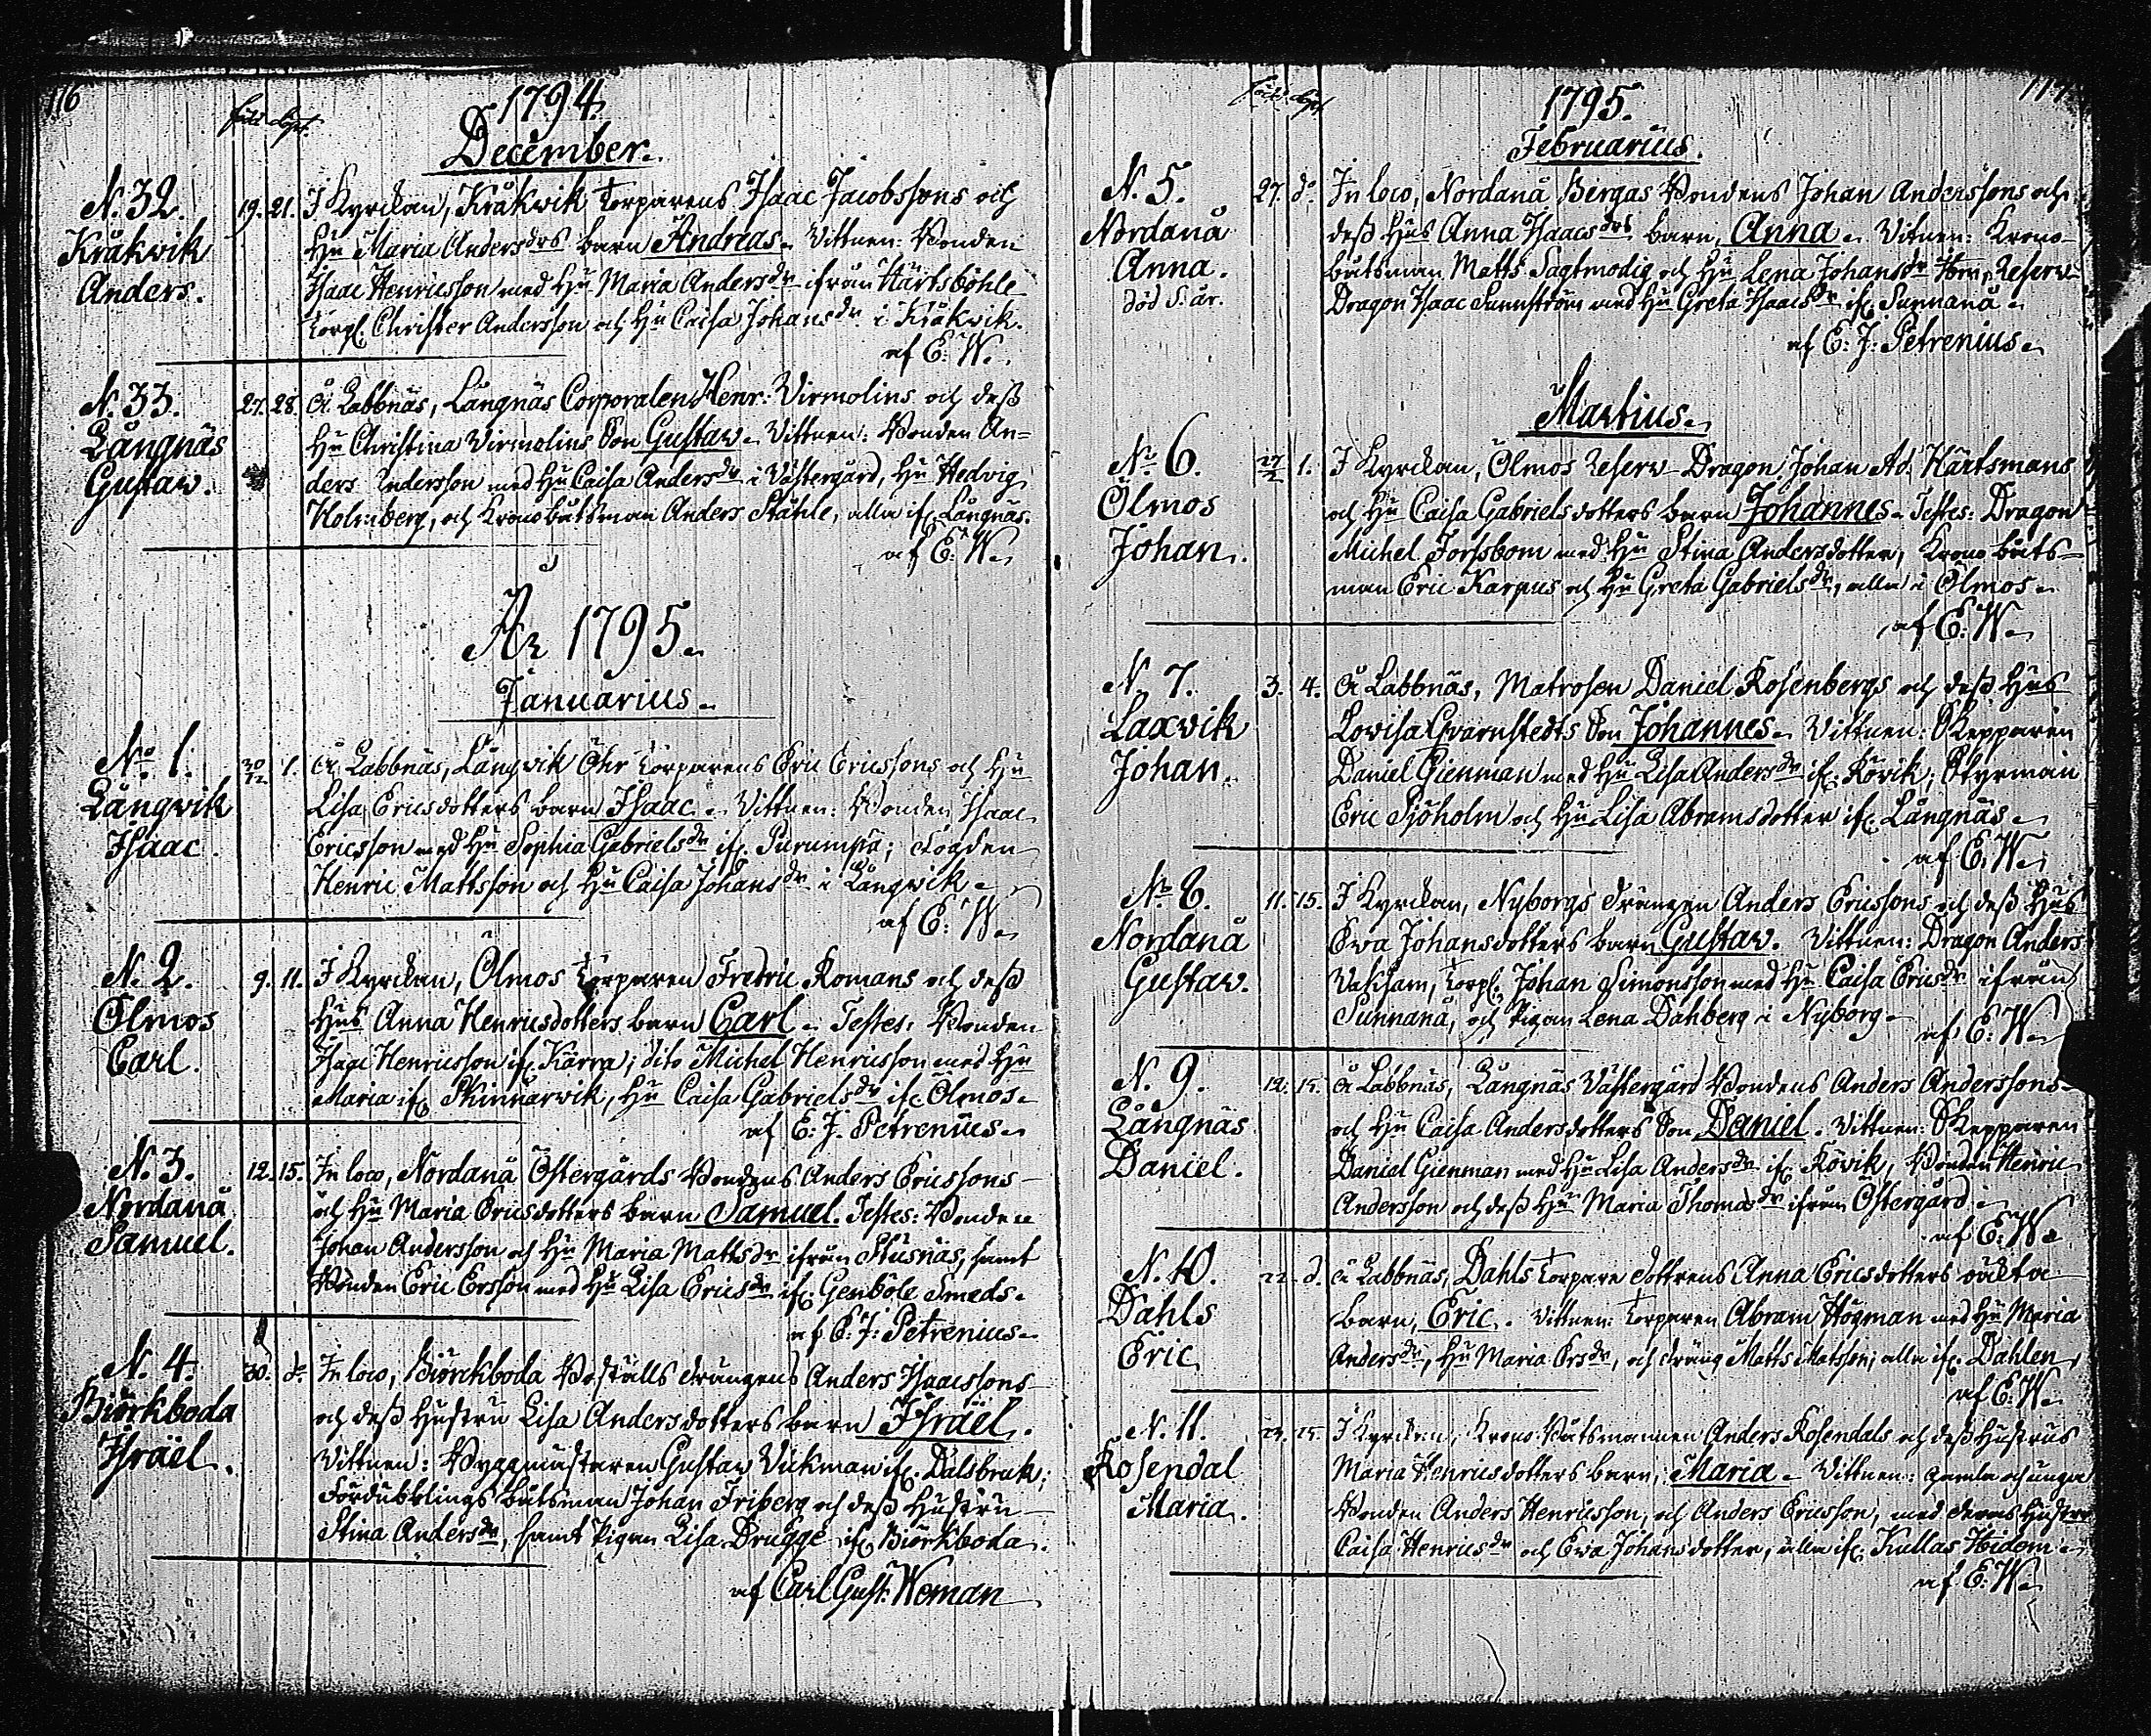 116
född döpt.
1794.
December.
N. 32. 19. 21. I Kyrckan, Kråkvik Torparens Isaac Jacobssons och
Kråkvik Hu Maria Andersdrs barn Andreas. Vittnen: Bonden
Anders. Isaac Henricsson med Hu Maria Andersdr ifrån Härtsböhle
Torp. Christer Andersson och Hu Caisa Johansdr i Kråkvik.
af E: W.
N. 33. 27. 28. å Labbnäs, Långnäs Corporalen Henr: Virmolins och dess
Långnäs Hu Christina Virmolins Son Gustaw. Vittnen: Bonden An=
Gustaw. ders Andersson med Hu Caisa Andersdr i Västergård, Hu Hedvig
Holmberg, och Kronobåtsman Anders Ståhle, alla if. Långnäs.
af E: W.
År 1795.
Januarius.
No. 1. 30/12 1. å Labbnäs, Långvik Öhr Torparens Eric Ericssons och Hu
Långvik Lisa Ericsdotters barn Isaac. Vittnen: Bonden Isaac
Isaac. Ericsson med Hu Sophia Gabrielsdr if. Purumpä; Fogden
Henric Mattsson och Hu Caisa Johansdr i Långvik.
af E: W.
N. 2. 9. 11. I Kyrckan, Ölmos Torparen Fredric Romans och dess
Ölmos Hus Anna Henricsdotters barn Carl. Testes: Bonden
Carl. Isaac Henricsson if. Kärra; dito Michel Henricsson med Hu
Maria if. Skinnarwik, Hu Caisa Gabrielsdr if. Ölmos.
af E: J. Petrenius.
N. 3. 12. 15. In loco, Nordanå Östergårds Bondens Anders Ericssons
Nordanå och Hu Maria Ericsdotters barn Samuel. Testes: Bonden
Samuel. Johan Andersson och Hu Maria Mattsdr ifrån Stusnäs, samt
Bonden Eric Ersson med Hu Lisa Ericsdr if. Genböle Smeds.
af E: J: Petrenius.
N. 4. 30. do In loco, Biörckboda Boställs drängens Anders Isaacssons
Biörkboda och dess Hustru Lisa Andersdotters barn Israël.
Israël. Vittnen: Byggmästaren Gustaw Vickman if. Dalsbruk;
Fördubblings båtsman Johan Friberg och dess Hustru
Stina Andersdr, samt Pigan Lisa Drugge if. Biörkboda.
af Carl Gust: Weman
117
född döpt
1795.
Februarius.
N. 5. 27. do In loco, Nordanå Bergas Bondens Johan Anderssons och
Nordanå dess Hus Anna Isaacsdrs barn, Anna. Vitnen: Krono-
Anna. båtsman Matts Sagtmodig och Hu Lena Johansdr Reserv-
död s. år. Dragon Isaac Sunnström med Hu Greta Isaacsdr if. Sunnanå.
af E: J: Petrenius.
Martius.
No 6. 27/2 1. I Kyrckan, Ölmos Reserv Dragon Johan Ad. Härtsmans
Ölmos och Hu Caisa Gabrielsdotters barn Johannes. Testes: Dragon
Johan. Michel Forssbom med Hu Stina Andersdotter, Krono båts-
man Eric Karpus och Hu Greta Gabrielsdr, alla i Ölmos.
af E: W.
N. 7. 3. 4. å Labbnäs, Matrosen Daniel Rosenbergs och dess Hus
Laxvik Lowisa Qvarnstedts Son Johannes. Vittnen: Skepparen
Johan. Daniel Gienman med Hu Lisa Andersdr if. Rövik, Styrman
Eric Sjöholm och Hu Lisa Abramsdotter if. Långnäs.
af E. W.
No 8. 11. 15. I Kyrckan, Nyborgs drängen Anders Ericssons och dess Hus
Nordanå Ewa Johansdotters barn Gustav. Vittnen: Dragon Anders
Gustav. Vaksam, Torp. Johan Simonsson med Hu Caisa Ericsdr ifrån
Sunnanå, och Pigan Lena Dahberg i Nyborg.
af E: W.
N. 9. 12. 15. å Labbnäs, Långnäs Västergård Bondens Anders Anderssons
Långnäs och Hu Caisa Andersdotters Son Daniel. Vittnen: Skepparen
Daniel. Daniel Gienman med Hu Lisa Andersdr if. Rövik, Bonden Henric
Andersson och dess Hu Maria Thomasdr ifrån Östergård.
af E: W.
N. 10. 22. d. å Labbnäs, Dahls Torpare dottrens Anna Ericsdotters oäkta
Dahls barn, Eric. Vittnen: Torparen Abram Högman med Hu Maria
Eric Andersdr, Hu Maria Ersdr, och dräng Matts Matsson; alla if. Dahlen.
af E: W.
N. 11. 24. 25. I Kyrckan, Krono Båtsmannen Anders Rosendals och dess Hustrus
Rosendal Maria Henricsdotters barn, Maria. Vittnen: gamla och unga
Maria. Bonden Anders Henricsson, och Anders Ericsson, med deras Hustrur
Caisa Henricsdr och Ewa Johansdotter, alla if. Kullas Hidom.
af E: W.